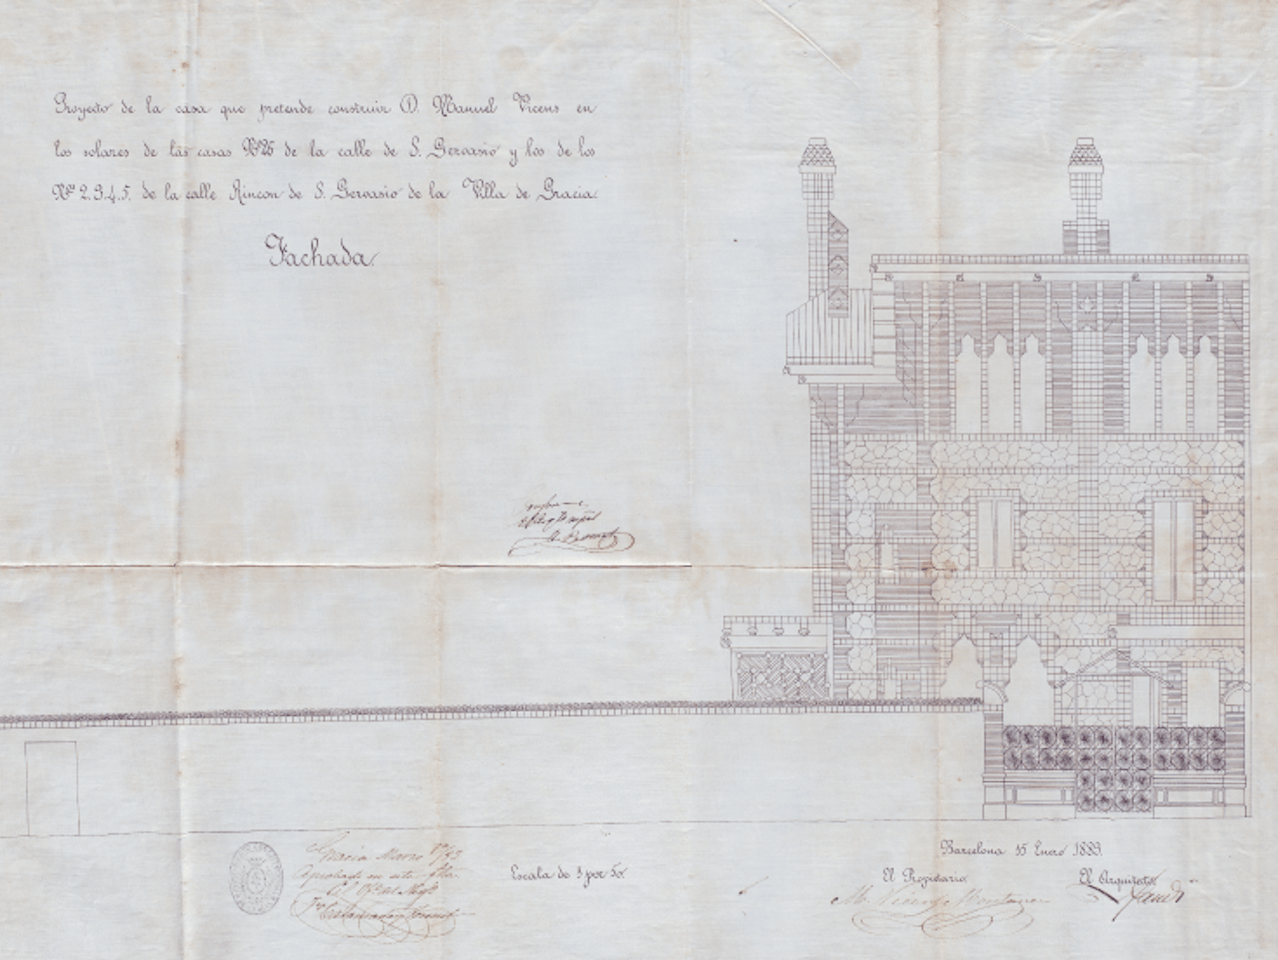 Proyecto de la casa que pretende construir D. Manuel Vicens en
los solares de las casas Nº 26 de la calle de S. Gervasio y los de los
Nos 2.3.4.5. de la calle Rincon de S. Gervasio de la Villa de Gracia.
Fachada.
Gracia Marzo
Aprobado en este
Escala de 1 por 50.
Barcelona 15 Enero 1883.
El Propietario
El Arquitecto
M. Vicens y Montaner
Gaudí